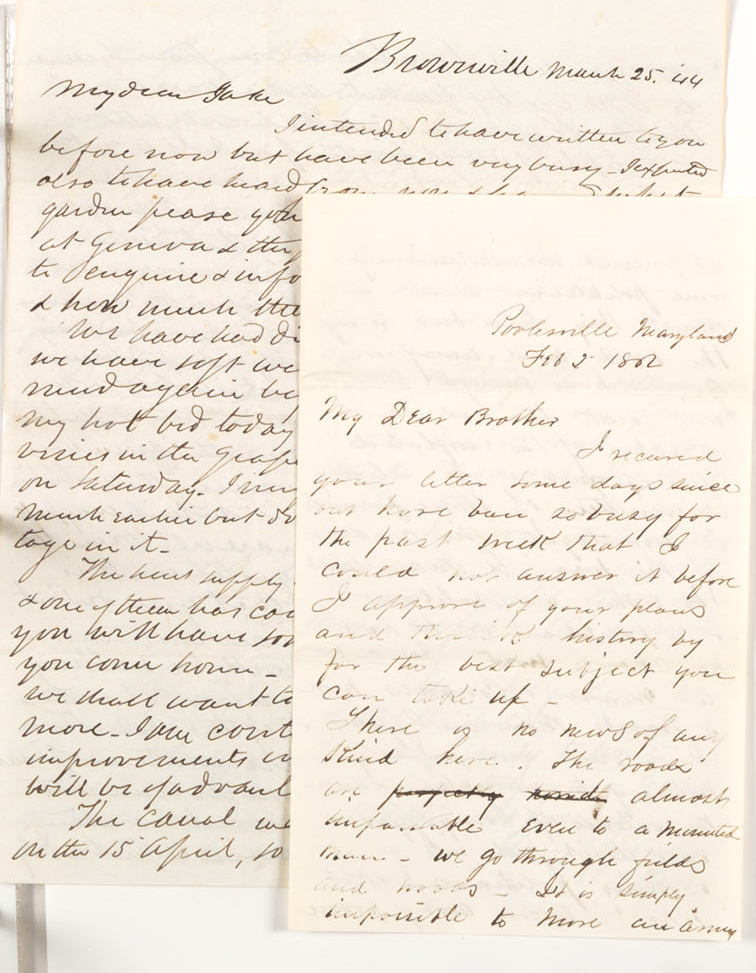 Brownville March 25. '44
My dear Jake
I intended to have written to you
before now but have been very busy - I expected
also to have heard from
garden please you
at Geneva & the
to enquire & info
& how much the
We have had di
we have soft we
mud again by
my hot bed today
vines in the Grape
on Saturday. I
much earlier but do
tage in it -
The hens supply
& one of them has
you will have
you come home -
we shall want to
more - I am cont
improvements in
will be of advant
The canal
on the 15 April, so
Poolesville Maryland
Feb 2 1862
My Dear Brother
I recured
your letter some days since
but have been so busy for
the past week that I
could not answer it before
I approve of your plans
and think history by
far the best subject you
can take up -
There is no news of any
kind here. The roads
are perfectly almost
impassable even to a mounted
man - we go through fields
and woods - It is simply
impossible to move an army